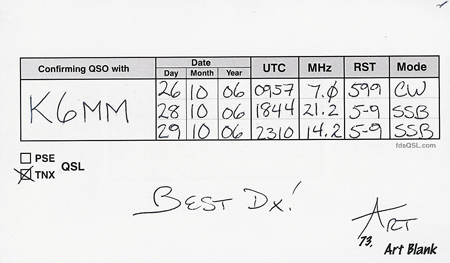 Confirming QSO with Date UTC MHz RST Mode
Day Month Year
K6MM
26 10 06 0957 7.0 599 CW
28 10 06 1844 21.2 5-9 SSB
29 10 06 2310 14.2 5-9 SSB
fdsQSL.com
PSE
TNX
QSL
BEST DX!
ART
73,
Art Blank